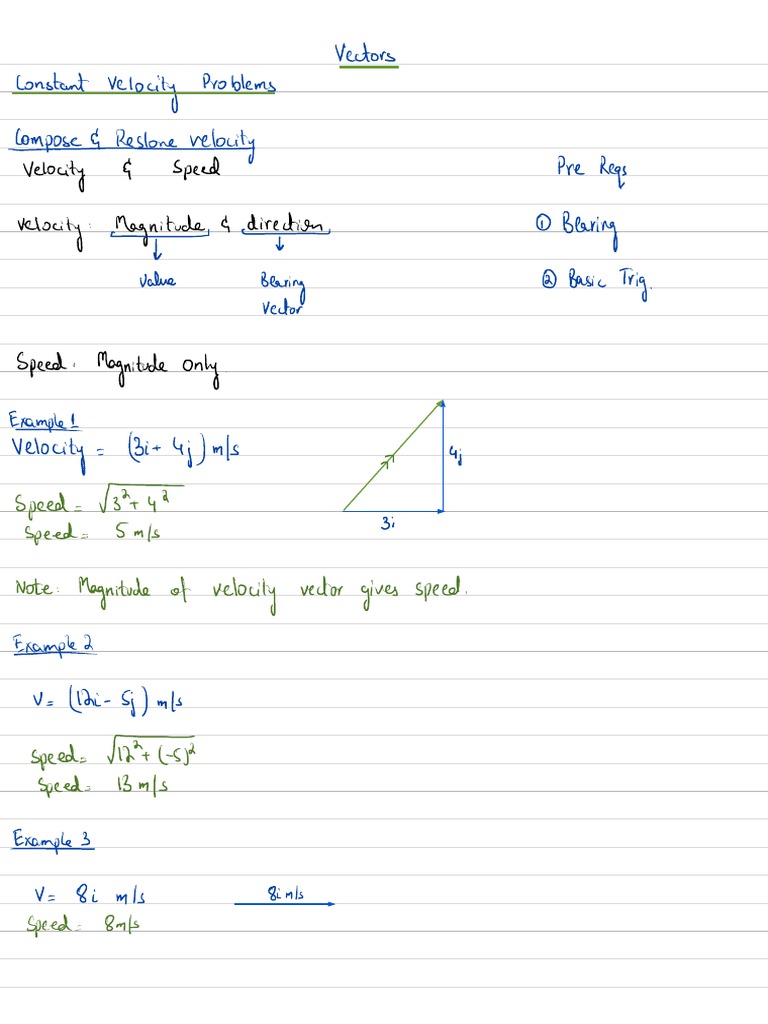 Vectors
Constant Velocity Problems
Compose & Reslone velocity
Velocity & Speed
Pre Reqs
Velocity: Magnitude & direction
① Bearing
↓ ↓
Value Bearing
Vector
② Basic Trig.
Speed: Magnitude only
Example 1
Velocity = (3i + 4j) m/s
4j
Speed = √3² + 4²
3i
Speed = 5 m/s
Note: Magnitude of velocity vector gives speed.
Example 2
V = (12i - 5j) m/s
Speed = √12² + (-5)²
Speed = 13 m/s
Example 3
V = 8i m/s
8i m/s
Speed = 8m/s